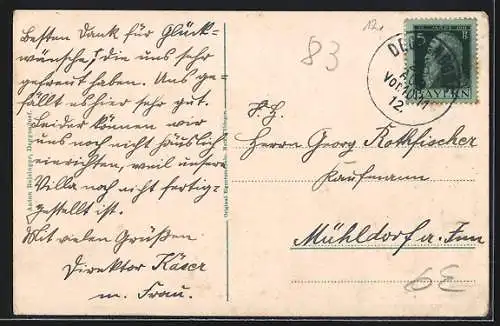 Besten Dank für Glück-
wünsche, die uns sehr
gefreut haben. Uns ge-
fällt es hier sehr gut.
Leider können wir
uns noch nicht häuslich
einrichten, weil unsere
Villa noch nicht fertig-
gestellt ist.
Mit vielen Grüßen
Direktor Käser
m. Frau.
Anton Deggendorf.
Original-Eigentum
12.
83
5
BAYERN
Vorm.
12
S. H.
Herrn Georg Rothfischer
Kaufmann
Mühldorf a. Inn
6E